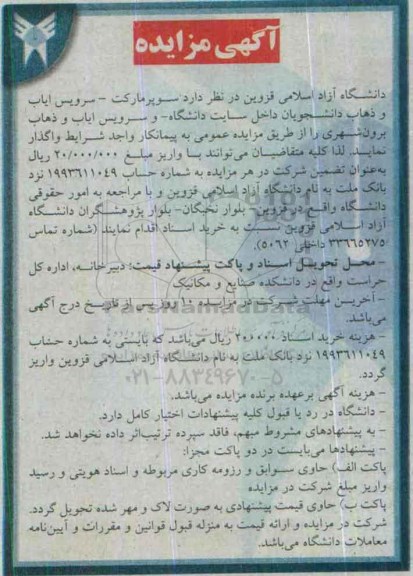 آگهی مزایده
دانشگاه آزاد اسلامی قزوین در نظر دارد سوپرمارکت - سرویس ایاب
و ذهاب دانشجویان داخل سایت دانشگاه- و سرویس ایاب و ذهاب
برون‌شهری را از طریق مزایده عمومی به پیمانکار واجد شرایط واگذار
نماید. لذا کلیه متقاضیان می‌توانند با واریز مبلغ ۲۰/۰۰۰/۰۰۰ ریال
به‌عنوان تضمین شرکت در هر مزایده به شماره حساب ۱۹۹۳۶۱۱۰۴۹ نزد
بانک ملت به نام دانشگاه آزاد اسلامی قزوین و با مراجعه به امور حقوقی
دانشگاه واقع در قزوین- بلوار نخبگان- بلوار پژوهشگران دانشگاه
آزاد اسلامی قزوین نسبت به خرید اسناد اقدام نمایند (شماره تماس
۳۳۶۶۵۲۷۵ داخلی ۵۰۶۲).
- محل تحویل اسناد و پاکت پیشنهاد قیمت: دبیرخانه، اداره کل
حراست واقع در دانشکده صنایع و مکانیک
- آخرین مهلت شرکت در مزایده ۱۰ روز پس از تاریخ درج آگهی
می‌باشد.
- هزینه خرید اسناد ۲۰۰۰۰۰ ریال می‌باشد که بایستی به شماره حساب
۱۹۹۳۶۱۱۰۴۹ نزد بانک ملت به نام دانشگاه آزاد اسلامی قزوین واریز
گردد.
۰۲۱-۸۸۳۴۹۶۷۰-۵
- هزینه آگهی برعهده برنده مزایده می‌باشد.
- دانشگاه در رد یا قبول کلیه پیشنهادات اختیار کامل دارد.
- به پیشنهادهای مشروط مبهم، فاقد سپرده ترتیب‌اثر داده نخواهد شد.
- پیشنهادها می‌بایست در دو پاکت مجزا:
پاکت الف) حاوی سوابق و رزومه کاری مربوطه و اسناد هویتی و رسید
واریز مبلغ شرکت در مزایده
پاکت ب) حاوی قیمت پیشنهادی به صورت لاک و مهر شده تحویل گردد.
شرکت در مزایده و ارائه قیمت به منزله قبول قوانین و مقررات و آیین‌نامه
معاملات دانشگاه می‌باشد.